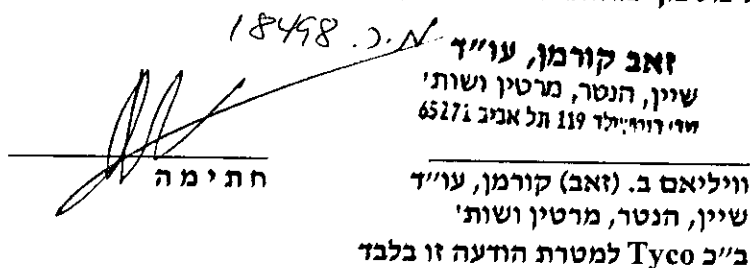 מ.ר. 18498
זאב קורמן, עו״ד
שיין, הנטר, מרטין ושות׳
שד׳ רוטשילד 119 תל אביב 65271
חתימה
וויליאם ב. (זאב) קורמן, עו״ד
שיין, הנטר, מרטין ושות׳
ב״כ Tyco למטרת הודעה זו בלבד